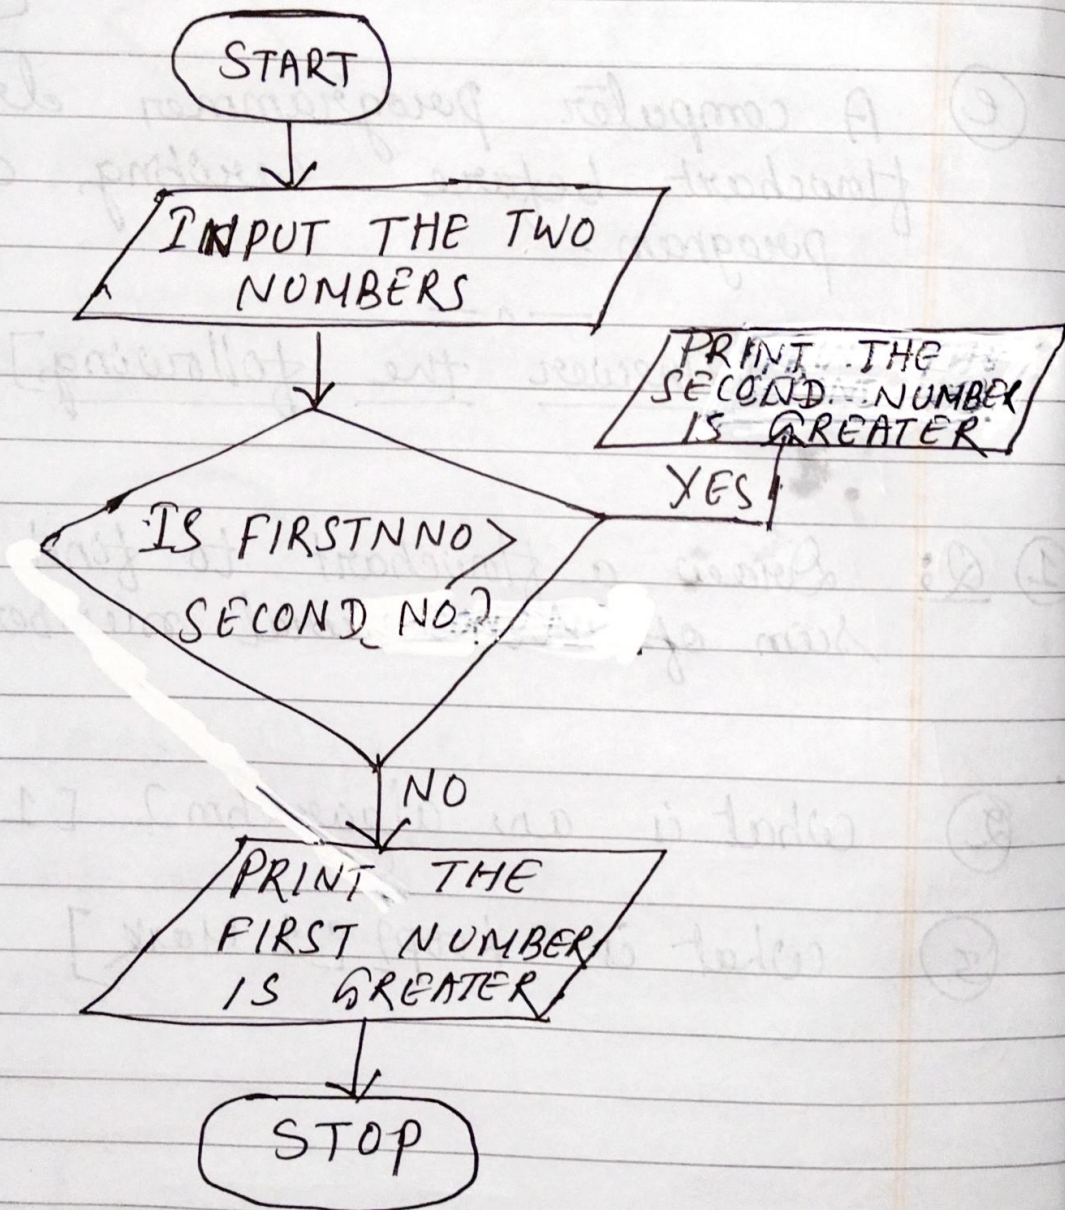 START
INPUT THE TWO
NUMBERS
PRINT THE
SECOND NUMBER
IS GREATER
YES
IS FIRSTNNO >
SECOND NO?
NO
PRINT THE
FIRST NUMBER
IS GREATER
STOP